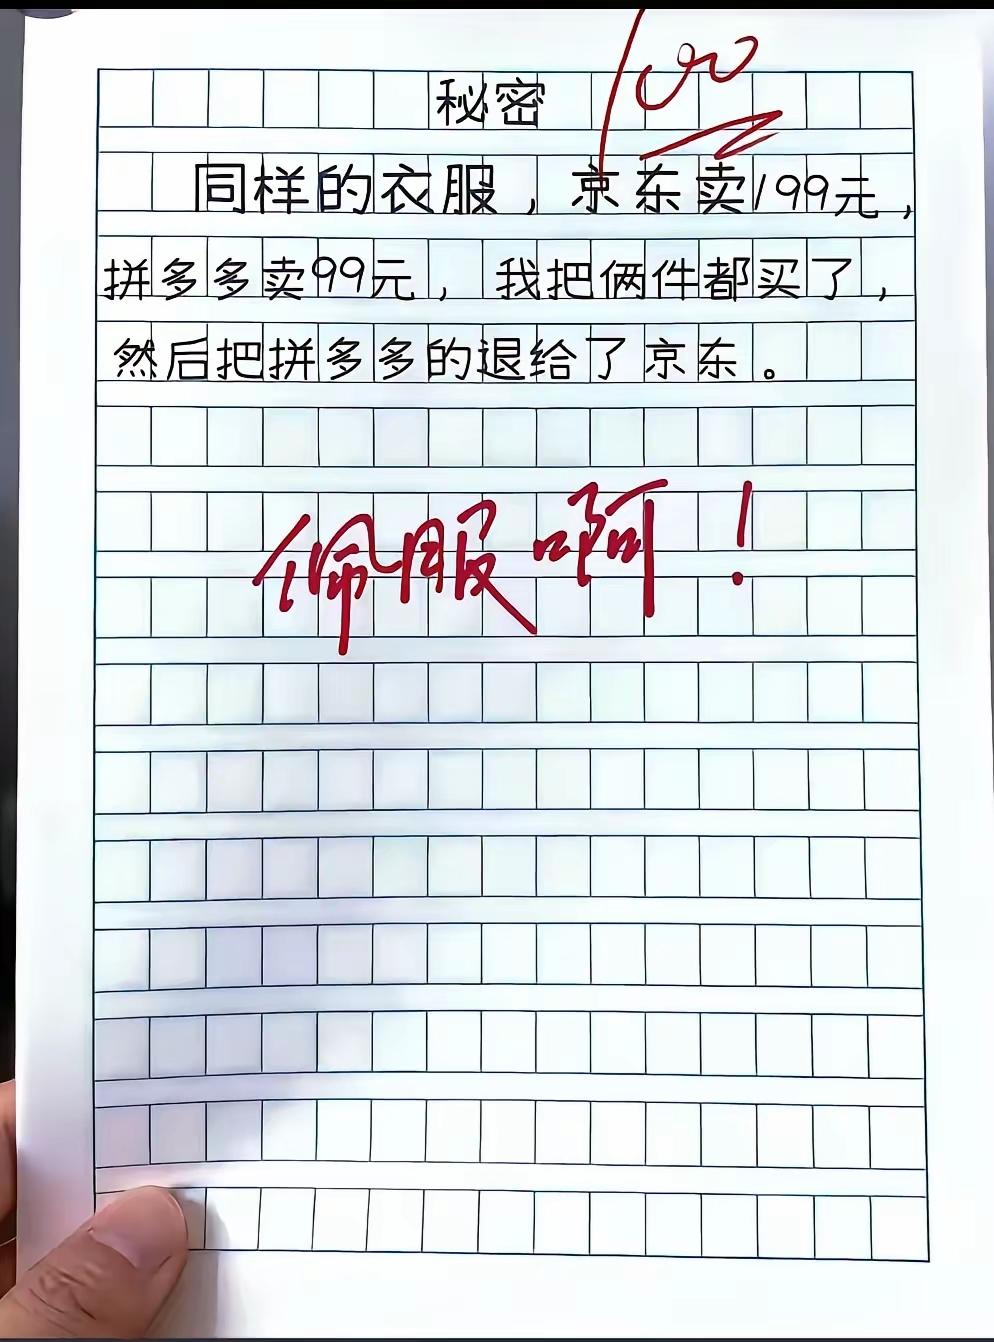 100
秘密
同样的衣服，京东卖199元，
拼多多卖99元，我把俩件都买了，
然后把拼多多的退给了京东。
佩服啊！